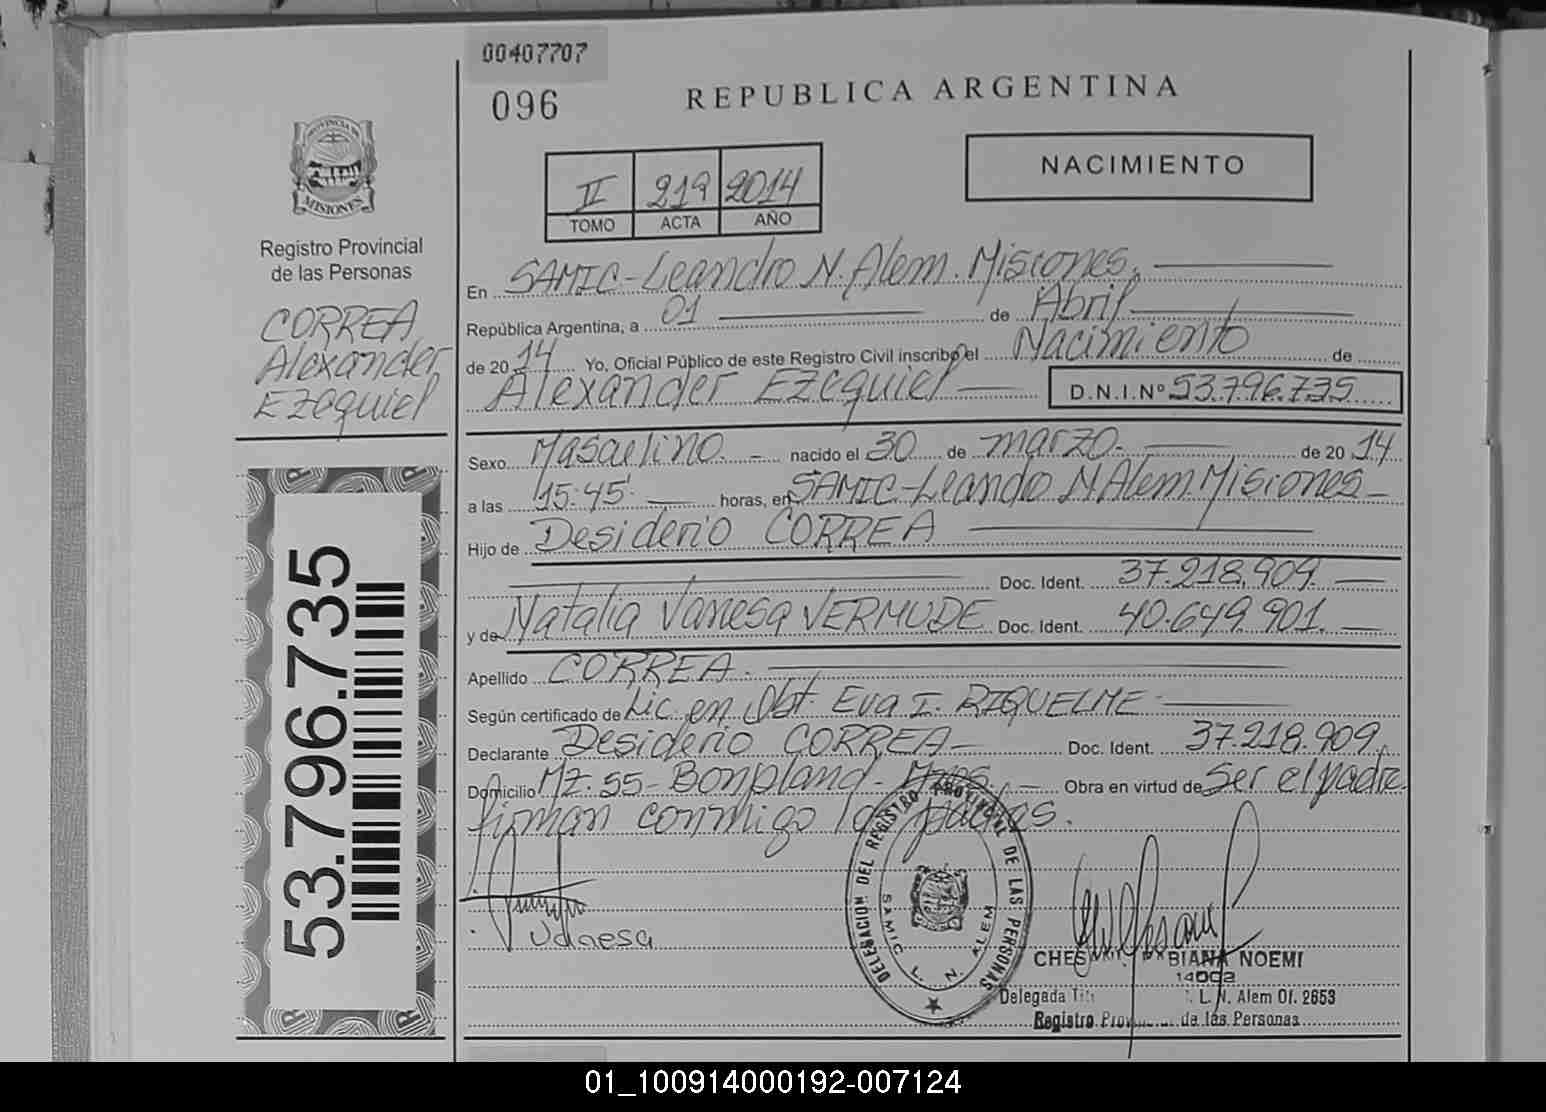 00407707
096
REPUBLICA ARGENTINA
NACIMIENTO
II 219 2014
TOMO ACTA AÑO
PROVINCIA DE
MISIONES
Registro Provincial
de las Personas
CORREA
Alexander
Ezequiel
53.796.735
En SAMIC-Leandro N. Alem. Misiones.
República Argentina, a 01 de Abril
de 2014 Yo, Oficial Público de este Registro Civil inscribo el Nacimiento de
Alexander Ezequiel D.N.I.Nº 53.796.735
Sexo Masculino. - nacido el 30 de marzo. de 2014
a las 15:45' horas, en SAMIC-Leandro N Alem. Misiones
Hijo de Desiderio CORREA
Doc. Ident. 37.218.909
y de Natalia Vanesa VERMUDE Doc. Ident. 40.649.901.
Apellido CORREA.
Según certificado de Lic. en Obt. Eva I. RIQUELME
Declarante Desiderio CORREA Doc. Ident. 37.218.909
Domicilio Mz. 55 - Bonpland - Mnes. Obra en virtud de Ser el padre
firman conmigo los padres.
Vanesa
DELEGACION DEL REGISTRO PROVINCIAL DE LAS PERSONAS
SAMIC L. N. ALEM
CHES BIANA NOEMI
14002
Delegada Tit L. N. Alem Of. 2653
Registro Provincial de las Personas
01_100914000192-007124